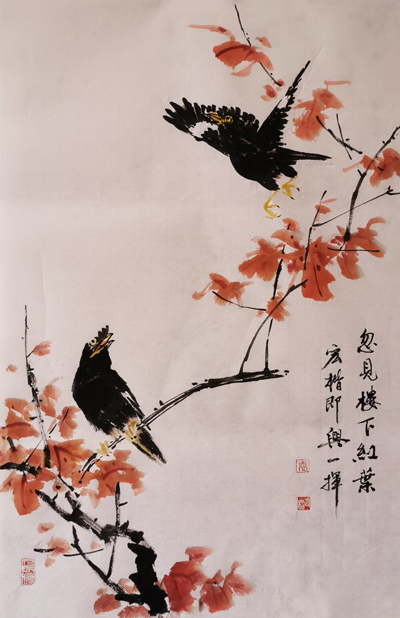 忽見楼下紅葉
宏楷即興一揮